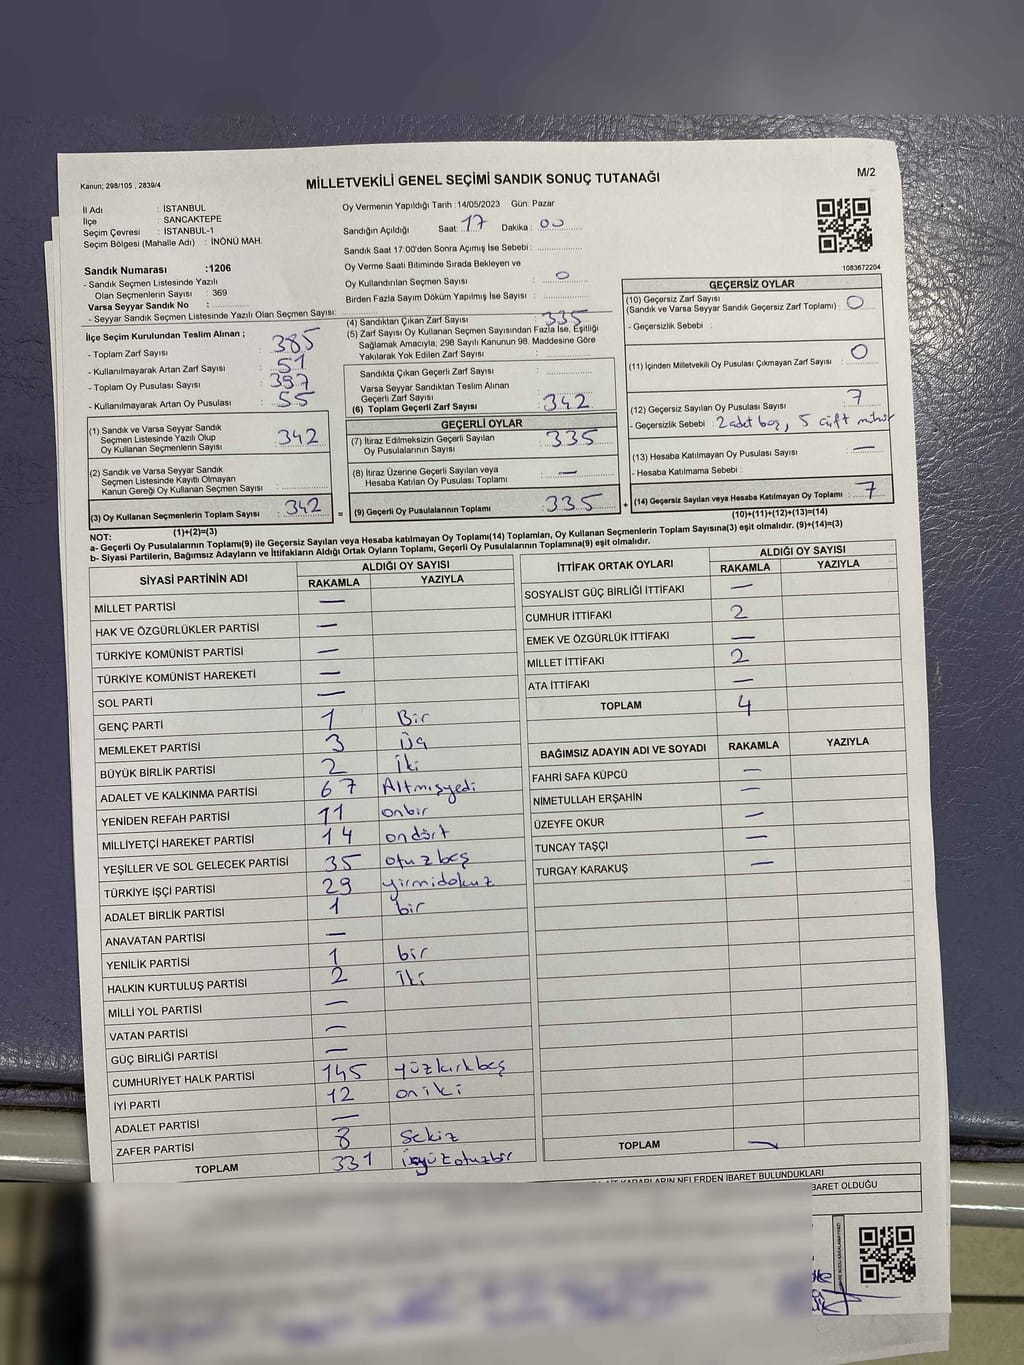 Kanun; 298/105 , 2839/4
MİLLETVEKİLİ GENEL SEÇİMİ SANDIK SONUÇ TUTANAĞI
M/2
İl Adı : İSTANBUL
İlçe : SANCAKTEPE
Seçim Çevresi : İSTANBUL-1
Seçim Bölgesi (Mahalle Adı) : İNÖNÜ MAH.
Sandık Numarası :1206
- Sandık Seçmen Listesinde Yazılı
Olan Seçmenlerin Sayısı : 369
Varsa Seyyar Sandık No :
- Seyyar Sandık Seçmen Listesinde Yazılı Olan Seçmen Sayısı:
Oy Vermenin Yapıldığı Tarih :14/05/2023 Gün: Pazar
Sandığın Açıldığı Saat: 17 Dakika : 00
Sandık Saat 17:00'den Sonra Açımış İse Sebebi :
Oy Verme Saati Bitiminde Sırada Bekleyen ve
Oy Kullandırılan Seçmen Sayısı : 0
Birden Fazla Sayım Döküm Yapılmış İse Sayısı :
1083672204
İlçe Seçim Kurulundan Teslim Alınan ;
- Toplam Zarf Sayısı : 385
- Kullanılmayarak Artan Zarf Sayısı : 51
- Toplam Oy Pusulası Sayısı : 397
- Kullanılmayarak Artan Oy Pusulası : 55
(1) Sandık ve Varsa Seyyar Sandık
Seçmen Listesinde Yazılı Olup
Oy Kullanan Seçmenlerin Sayısı : 342
(2) Sandık ve Varsa Seyyar Sandık
Seçmen Listesinde Kayıtlı Olmayan
Kanun Gereği Oy Kullanan Seçmen Sayısı :
(3) Oy Kullanan Seçmenlerin Toplam Sayısı : 342
(1)+(2)=(3)
(4) Sandıktan Çıkan Zarf Sayısı : 335
(5) Zarf Sayısı Oy Kullanan Seçmen Sayısından Fazla İse, Eşitliği
Sağlamak Amacıyla; 298 Sayılı Kanunun 98. Maddesine Göre
Yakılarak Yok Edilen Zarf Sayısı :
Sandıkta Çıkan Geçerli Zarf Sayısı :
Varsa Seyyar Sandıktan Teslim Alınan
Geçerli Zarf Sayısı :
(6) Toplam Geçerli Zarf Sayısı : 342
GEÇERLİ OYLAR
(7) İtiraz Edilmeksizin Geçerli Sayılan
Oy Pusulalarının Sayısı : 335
(8) İtiraz Üzerine Geçerli Sayılan veya
Hesaba Katılan Oy Pusulası Toplamı : —
= (9) Geçerli Oy Pusulalarının Toplamı : 335 +
GEÇERSİZ OYLAR
(10) Geçersiz Zarf Sayısı
(Sandık ve Varsa Seyyar Sandık Geçersiz Zarf Toplamı) : 0
- Geçersizlik Sebebi :
(11) İçinden Milletvekili Oy Pusulası Çıkmayan Zarf Sayısı : 0
(12) Geçersiz Sayılan Oy Pusulası Sayısı : 7
- Geçersizlik Sebebi : 2 adet boş, 5 çift mühür
(13) Hesaba Katılmayan Oy Pusulası Sayısı : —
- Hesaba Katılmama Sebebi :
(14) Geçersiz Sayılan veya Hesaba Katılmayan Oy Toplamı : 7
(10)+(11)+(12)+(13)=(14)
NOT:
a- Geçerli Oy Pusulalarının Toplamı(9) ile Geçersiz Sayılan veya Hesaba katılmayan Oy Toplamı(14) Toplamları, Oy Kullanan Seçmenlerin Toplam Sayısına(3) eşit olmalıdır. (9)+(14)=(3)
b- Siyasi Partilerin, Bağımsız Adayların ve İttifakların Aldığı Ortak Oyların Toplamı, Geçerli Oy Pusulalarının Toplamına(9) eşit olmalıdır.
SİYASİ PARTİNİN ADI ALDIĞI OY SAYISI
RAKAMLA YAZIYLA
MİLLET PARTİSİ —
HAK VE ÖZGÜRLÜKLER PARTİSİ —
TÜRKİYE KOMÜNİST PARTİSİ —
TÜRKİYE KOMÜNİST HAREKETİ —
SOL PARTİ —
GENÇ PARTİ 1 Bir
MEMLEKET PARTİSİ 3 Üç
BÜYÜK BİRLİK PARTİSİ 2 İki
ADALET VE KALKINMA PARTİSİ 67 Altmışyedi
YENİDEN REFAH PARTİSİ 11 onbir
MİLLİYETÇİ HAREKET PARTİSİ 14 ondört
YEŞİLLER VE SOL GELECEK PARTİSİ 35 otuzbeş
TÜRKİYE İŞÇİ PARTİSİ 29 yirmidokuz
ADALET BİRLİK PARTİSİ 1 bir
ANAVATAN PARTİSİ —
YENİLİK PARTİSİ 1 bir
HALKIN KURTULUŞ PARTİSİ 2 İki
MİLLİ YOL PARTİSİ —
VATAN PARTİSİ —
GÜÇ BİRLİĞİ PARTİSİ —
CUMHURİYET HALK PARTİSİ 145 yüzkırkbeş
İYİ PARTİ 12 oniki
ADALET PARTİSİ —
ZAFER PARTİSİ 8 Sekiz
TOPLAM 331 üçyüzotuzbir
İTTİFAK ORTAK OYLARI ALDIĞI OY SAYISI
RAKAMLA YAZIYLA
SOSYALİST GÜÇ BİRLİĞİ İTTİFAKI —
CUMHUR İTTİFAKI 2
EMEK VE ÖZGÜRLÜK İTTİFAKI —
MİLLET İTTİFAKI 2
ATA İTTİFAKI —
TOPLAM 4
BAĞIMSIZ ADAYIN ADI VE SOYADI RAKAMLA YAZIYLA
FAHRİ SAFA KÜPCÜ —
NİMETULLAH ERŞAHİN —
ÜZEYFE OKUR —
TUNCAY TAŞÇI —
TURGAY KARAKUŞ —
TOPLAM —
KARARLARIN NELERDEN İBARET BULUNDUKLARI
BARET OLDUĞU